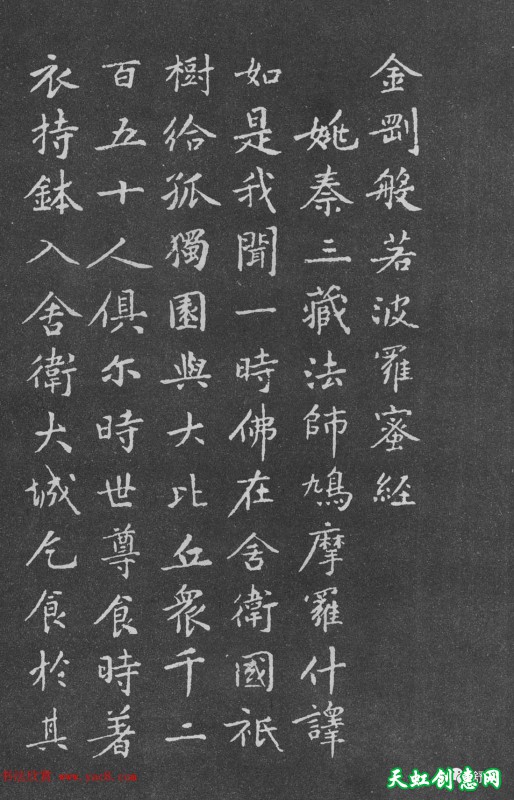 金剛般若波羅蜜經
姚秦三藏法師鳩摩羅什譯
如是我聞一時佛在舍衛國祇
樹給孤獨園與大比丘衆千二
百五十人俱尒時世尊食時著
衣持鉢入舍衛大城乞食於其
天虹创意网